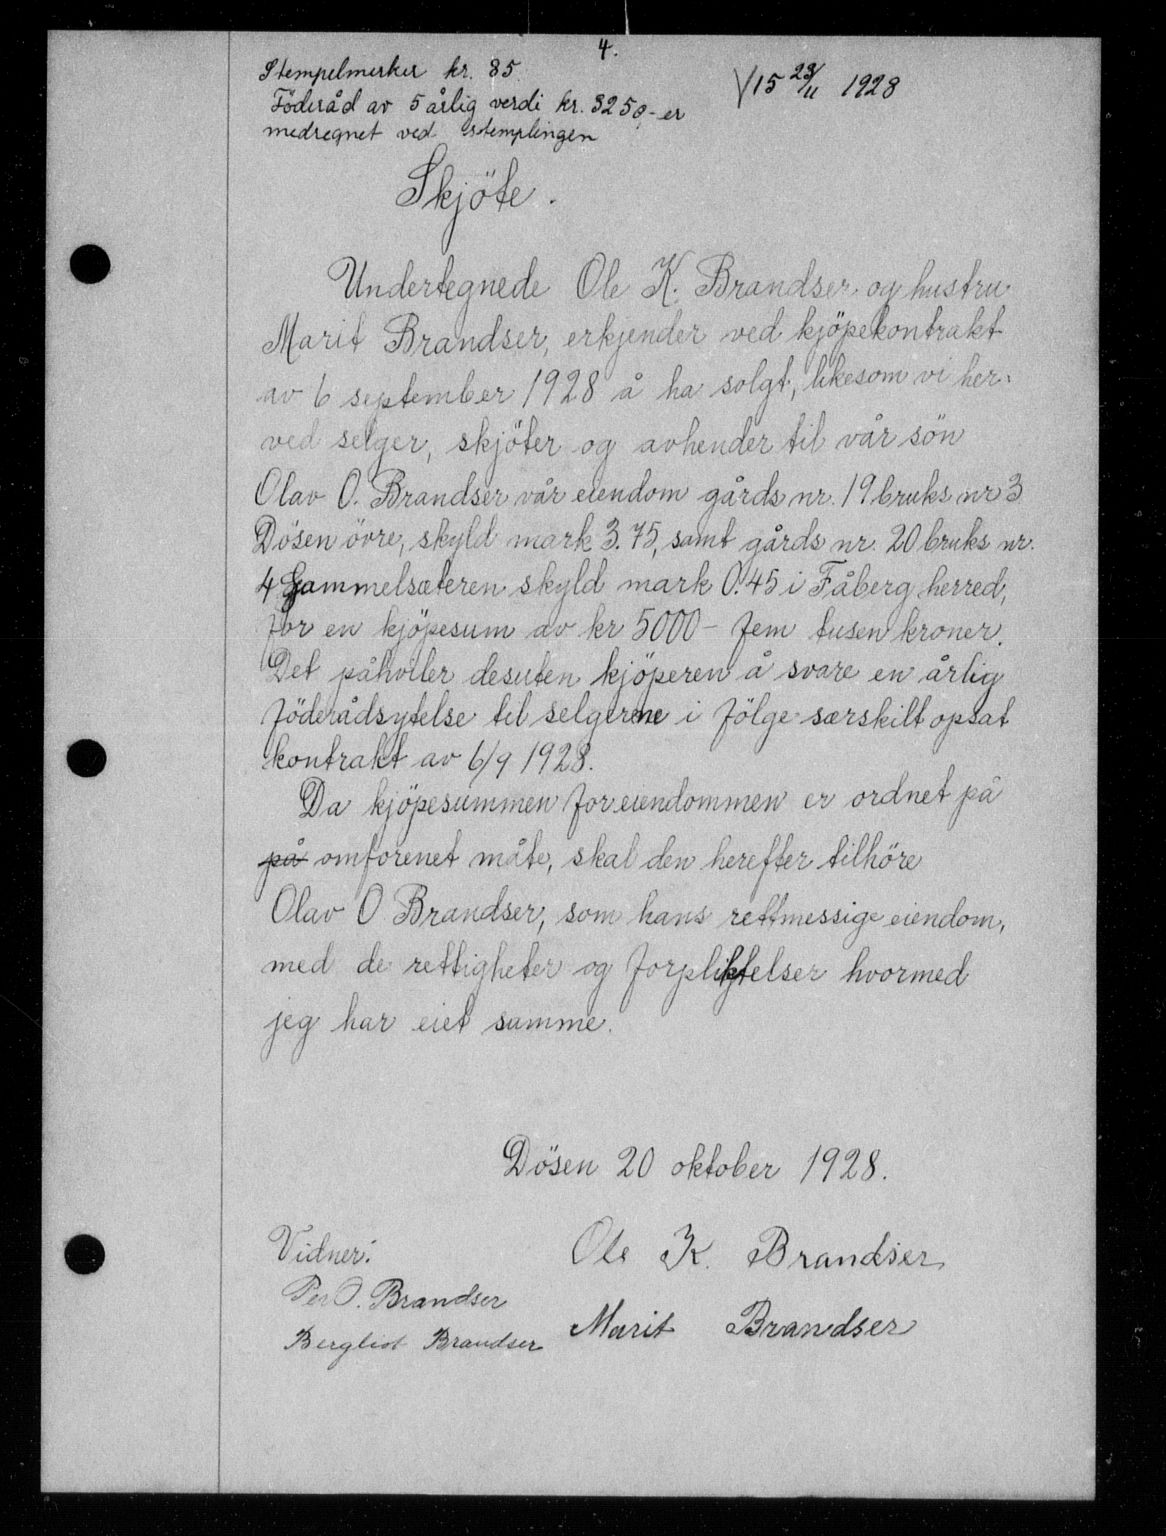 4.
Stempelmerker kr. 85.
Föderåd av 5 årlig verdi kr. 3250,- er
medregnet ved stemplingen
15 23/11 1928
Skjöte.
Undertegnede Ole K. Brandser og hustru
Marit Brandser, erkjender ved kjöpekontrakt
av 6 september 1928 å ha solgt, likesom vi her-
ved selger, skjöter og avhender til vår sön
Olav O. Brandser vår eiendom gårds nr. 19 bruks nr 3
Dösen övre, skyld mark 3.75, samt gårds nr. 20 bruks nr.
4 Gammelsæteren skyld mark 0.45 i Fåberg herred,
for en kjöpesum av kr 5000- fem tusen kroner.
Det påhviler desuten kjöperen å svare en årlig
föderådsytelse til selgerne i fölge særskilt opsat
kontrakt av 6/9 1928.
Da kjöpesummen for eiendommen er ordnet på
på omforenet måte, skal den herefter tilhöre
Olav O Brandser, som hans rettmessige eiendom,
med de rettigheter og forpliktelser hvormed
jeg har eiet samme.
Dösen 20 oktober 1928.
Vidner:
Ole K. Brandser
Per O. Brandser
Marit Brandser
Bergliot Brandser